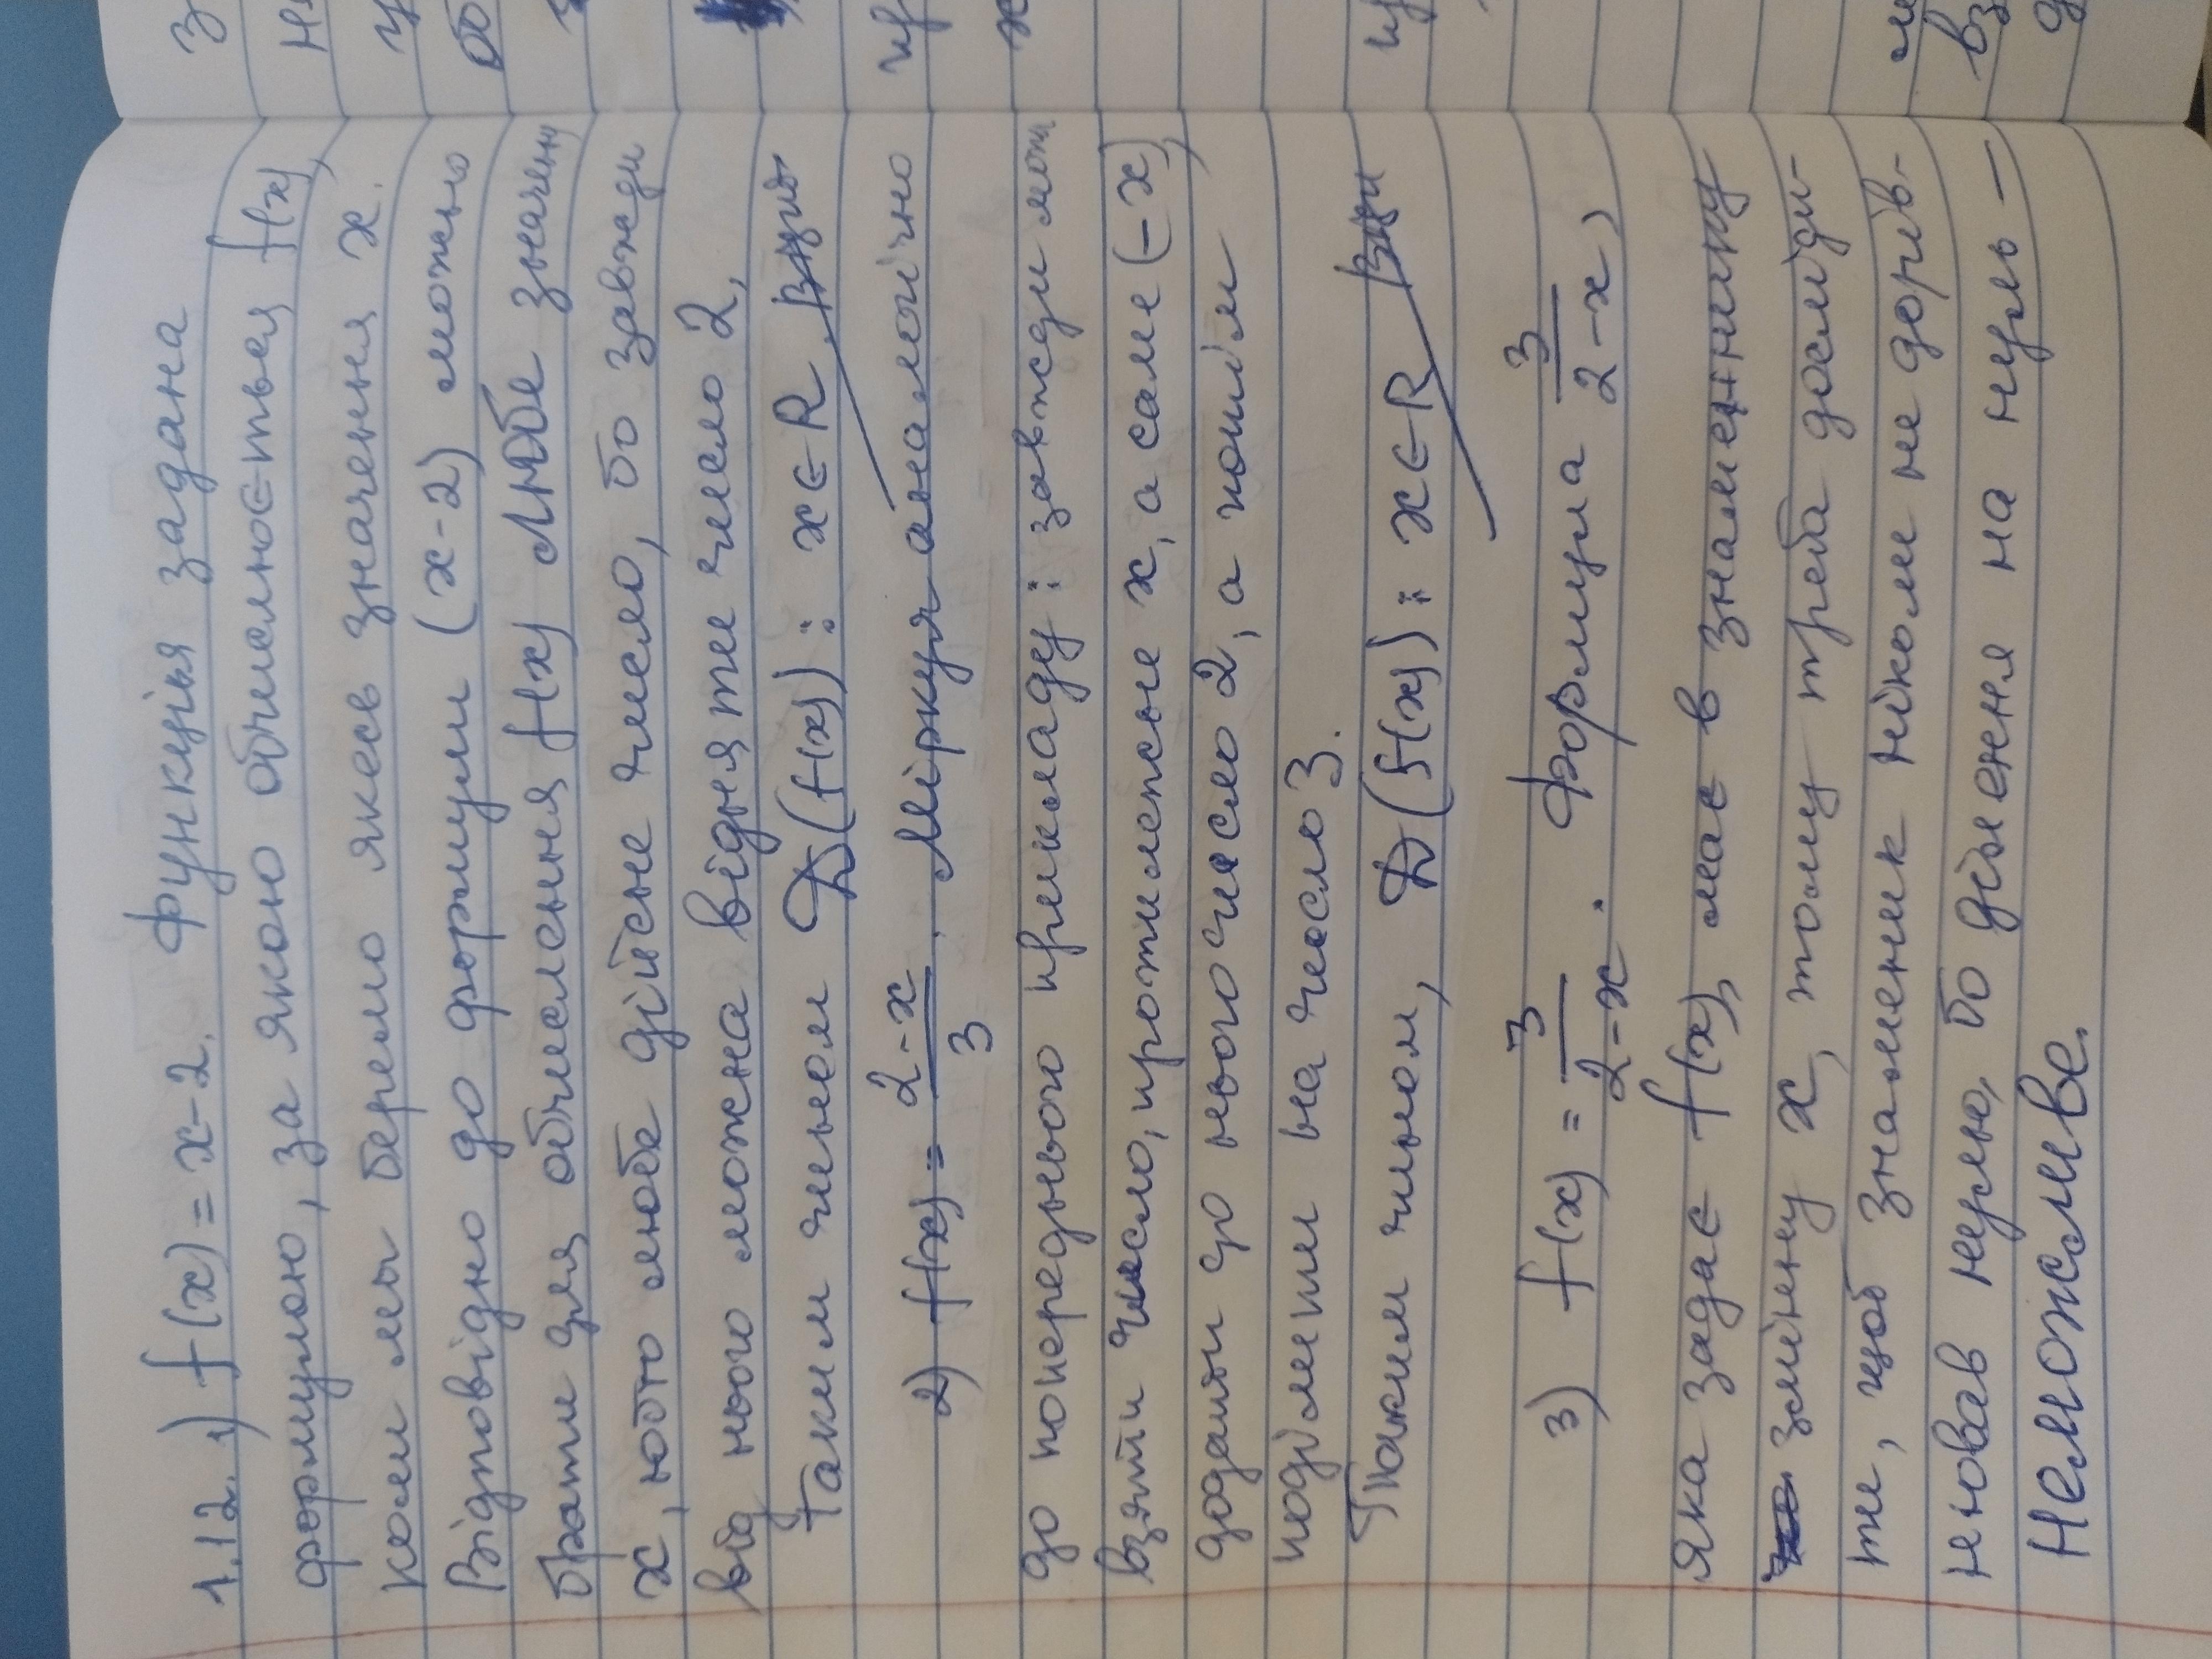 1.12. 1) f(x) = x-2. Функція задана
формулою, за якою обчислюється f(x),
коли ми беремо якесь значення x.
Відповідно до формули (x-2) можемо
брати для обчислення f(x) любе значення
x, тобто любе дійсне число, бо завжди
від нього можна відняти число 2.
Таким чином D(f(x)): x∈R
2) f(x) = (2-x)/3. Міркуя аналогічно
до попереднього прикладу: завжди можн
взяти число, протилежне x, а саме (-x),
додати до нього число 2, а потім
поділити на число 3.
Таким чином, D(f(x)): x∈R
3) f(x) = 3/(2-x). Формула 3/(2-x),
яка задає f(x), має в знаменнику
змінну x, тому треба досліди-
ти, щоб знаменник ніколи не дорів-
нював нулю, бо ділення на нуль —
неможливе.